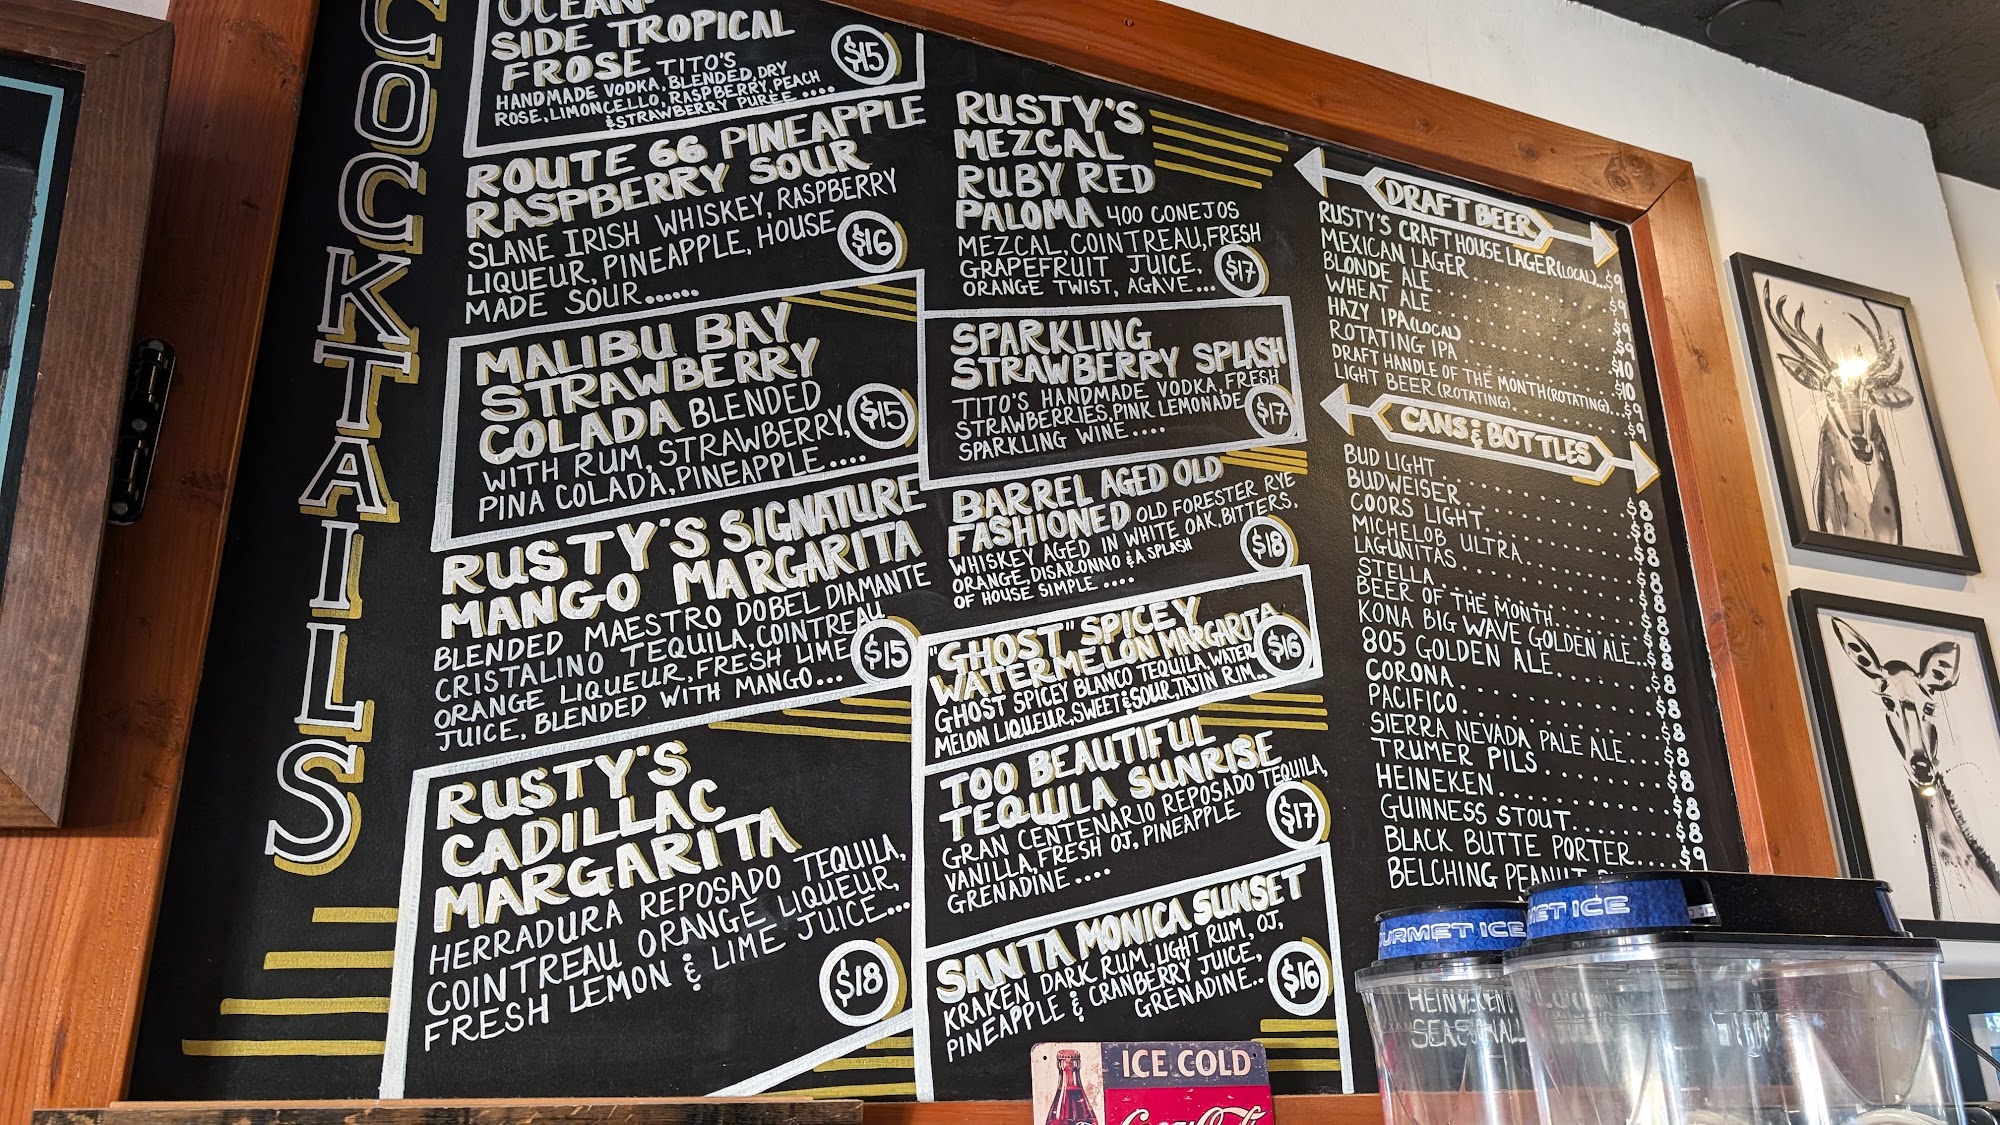 COCKTAILS
OCEAN
SIDE TROPICAL
FROSE TITO'S
HANDMADE VODKA, BLENDED, DRY
ROSE, LIMONCELLO, RASPBERRY, PEACH
& STRAWBERRY PUREE ....
$15
ROUTE 66 PINEAPPLE
RASPBERRY SOUR
SLANE IRISH WHISKEY, RASPBERRY
LIQUEUR, PINEAPPLE, HOUSE
MADE SOUR......
$16
MALIBU BAY
STRAWBERRY
COLADA BLENDED
WITH RUM, STRAWBERRY,
PINA COLADA, PINEAPPLE....
$15
RUSTY'S SIGNATURE
MANGO MARGARITA
BLENDED MAESTRO DOBEL DIAMANTE
CRISTALINO TEQUILA, COINTREAU
ORANGE LIQUEUR, FRESH LIME
JUICE, BLENDED WITH MANGO...
$15
RUSTY'S
CADILLAC
MARGARITA
HERRADURA REPOSADO TEQUILA,
COINTREAU ORANGE LIQUEUR,
FRESH LEMON & LIME JUICE...
$18
RUSTY'S
MEZCAL
RUBY RED
PALOMA 400 CONEJOS
MEZCAL, COINTREAU, FRESH
GRAPEFRUIT JUICE,
ORANGE TWIST, AGAVE...
$17
SPARKLING
STRAWBERRY SPLASH
TITO'S HANDMADE VODKA, FRESH
STRAWBERRIES, PINK LEMONADE
SPARKLING WINE....
$17
BARREL AGED OLD
FASHIONED OLD FORESTER RYE
WHISKEY AGED IN WHITE OAK, BITTERS,
ORANGE, DISARONNO & A SPLASH
OF HOUSE SIMPLE....
$18
"GHOST" SPICEY
WATERMELON MARGARITA
GHOST SPICEY BLANCO TEQUILA, WATER
MELON LIQUEUR, SWEET & SOUR, TAJIN RIM..
$16
TOO BEAUTIFUL
TEQUILA SUNRISE
GRAN CENTENARIO REPOSADO TEQUILA,
VANILLA, FRESH OJ, PINEAPPLE
GRENADINE....
$17
SANTA MONICA SUNSET
KRAKEN DARK RUM, LIGHT RUM, OJ,
PINEAPPLE & CRANBERRY JUICE,
GRENADINE..
$16
DRAFT BEER
RUSTY'S CRAFT HOUSE LAGER (LOCAL)...$9
MEXICAN LAGER..........$9
BLONDE ALE..........$9
WHEAT ALE..........$9
HAZY IPA (LOCAL)..........$10
ROTATING IPA..........$10
DRAFT HANDLE OF THE MONTH (ROTATING)...$9
LIGHT BEER (ROTATING)..........$9
CANS & BOTTLES
BUD LIGHT..........$8
BUDWEISER..........$8
COORS LIGHT..........$8
MICHELOB ULTRA..........$8
LAGUNITAS..........$8
STELLA..........$8
BEER OF THE MONTH..........$8
KONA BIG WAVE GOLDEN ALE...$8
805 GOLDEN ALE..........$8
CORONA..........$8
PACIFICO..........$8
SIERRA NEVADA PALE ALE...$8
TRUMER PILS..........$8
HEINEKEN..........$8
GUINNESS STOUT..........$8
BLACK BUTTE PORTER....$9
BELCHING PEANUT
GOURMET ICE
ICE COLD
Coca-Cola